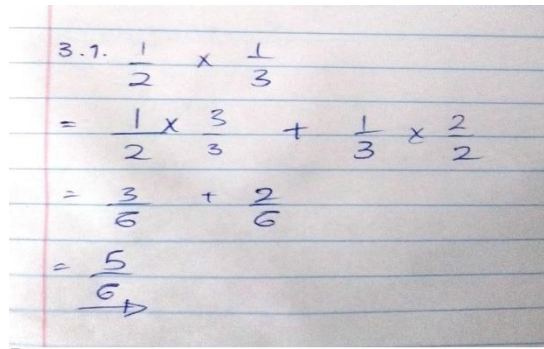 3.1. 1/2 x 1/3
= 1/2 x 3/3 + 1/3 x 2/2
= 3/6 + 2/6
= 5/6